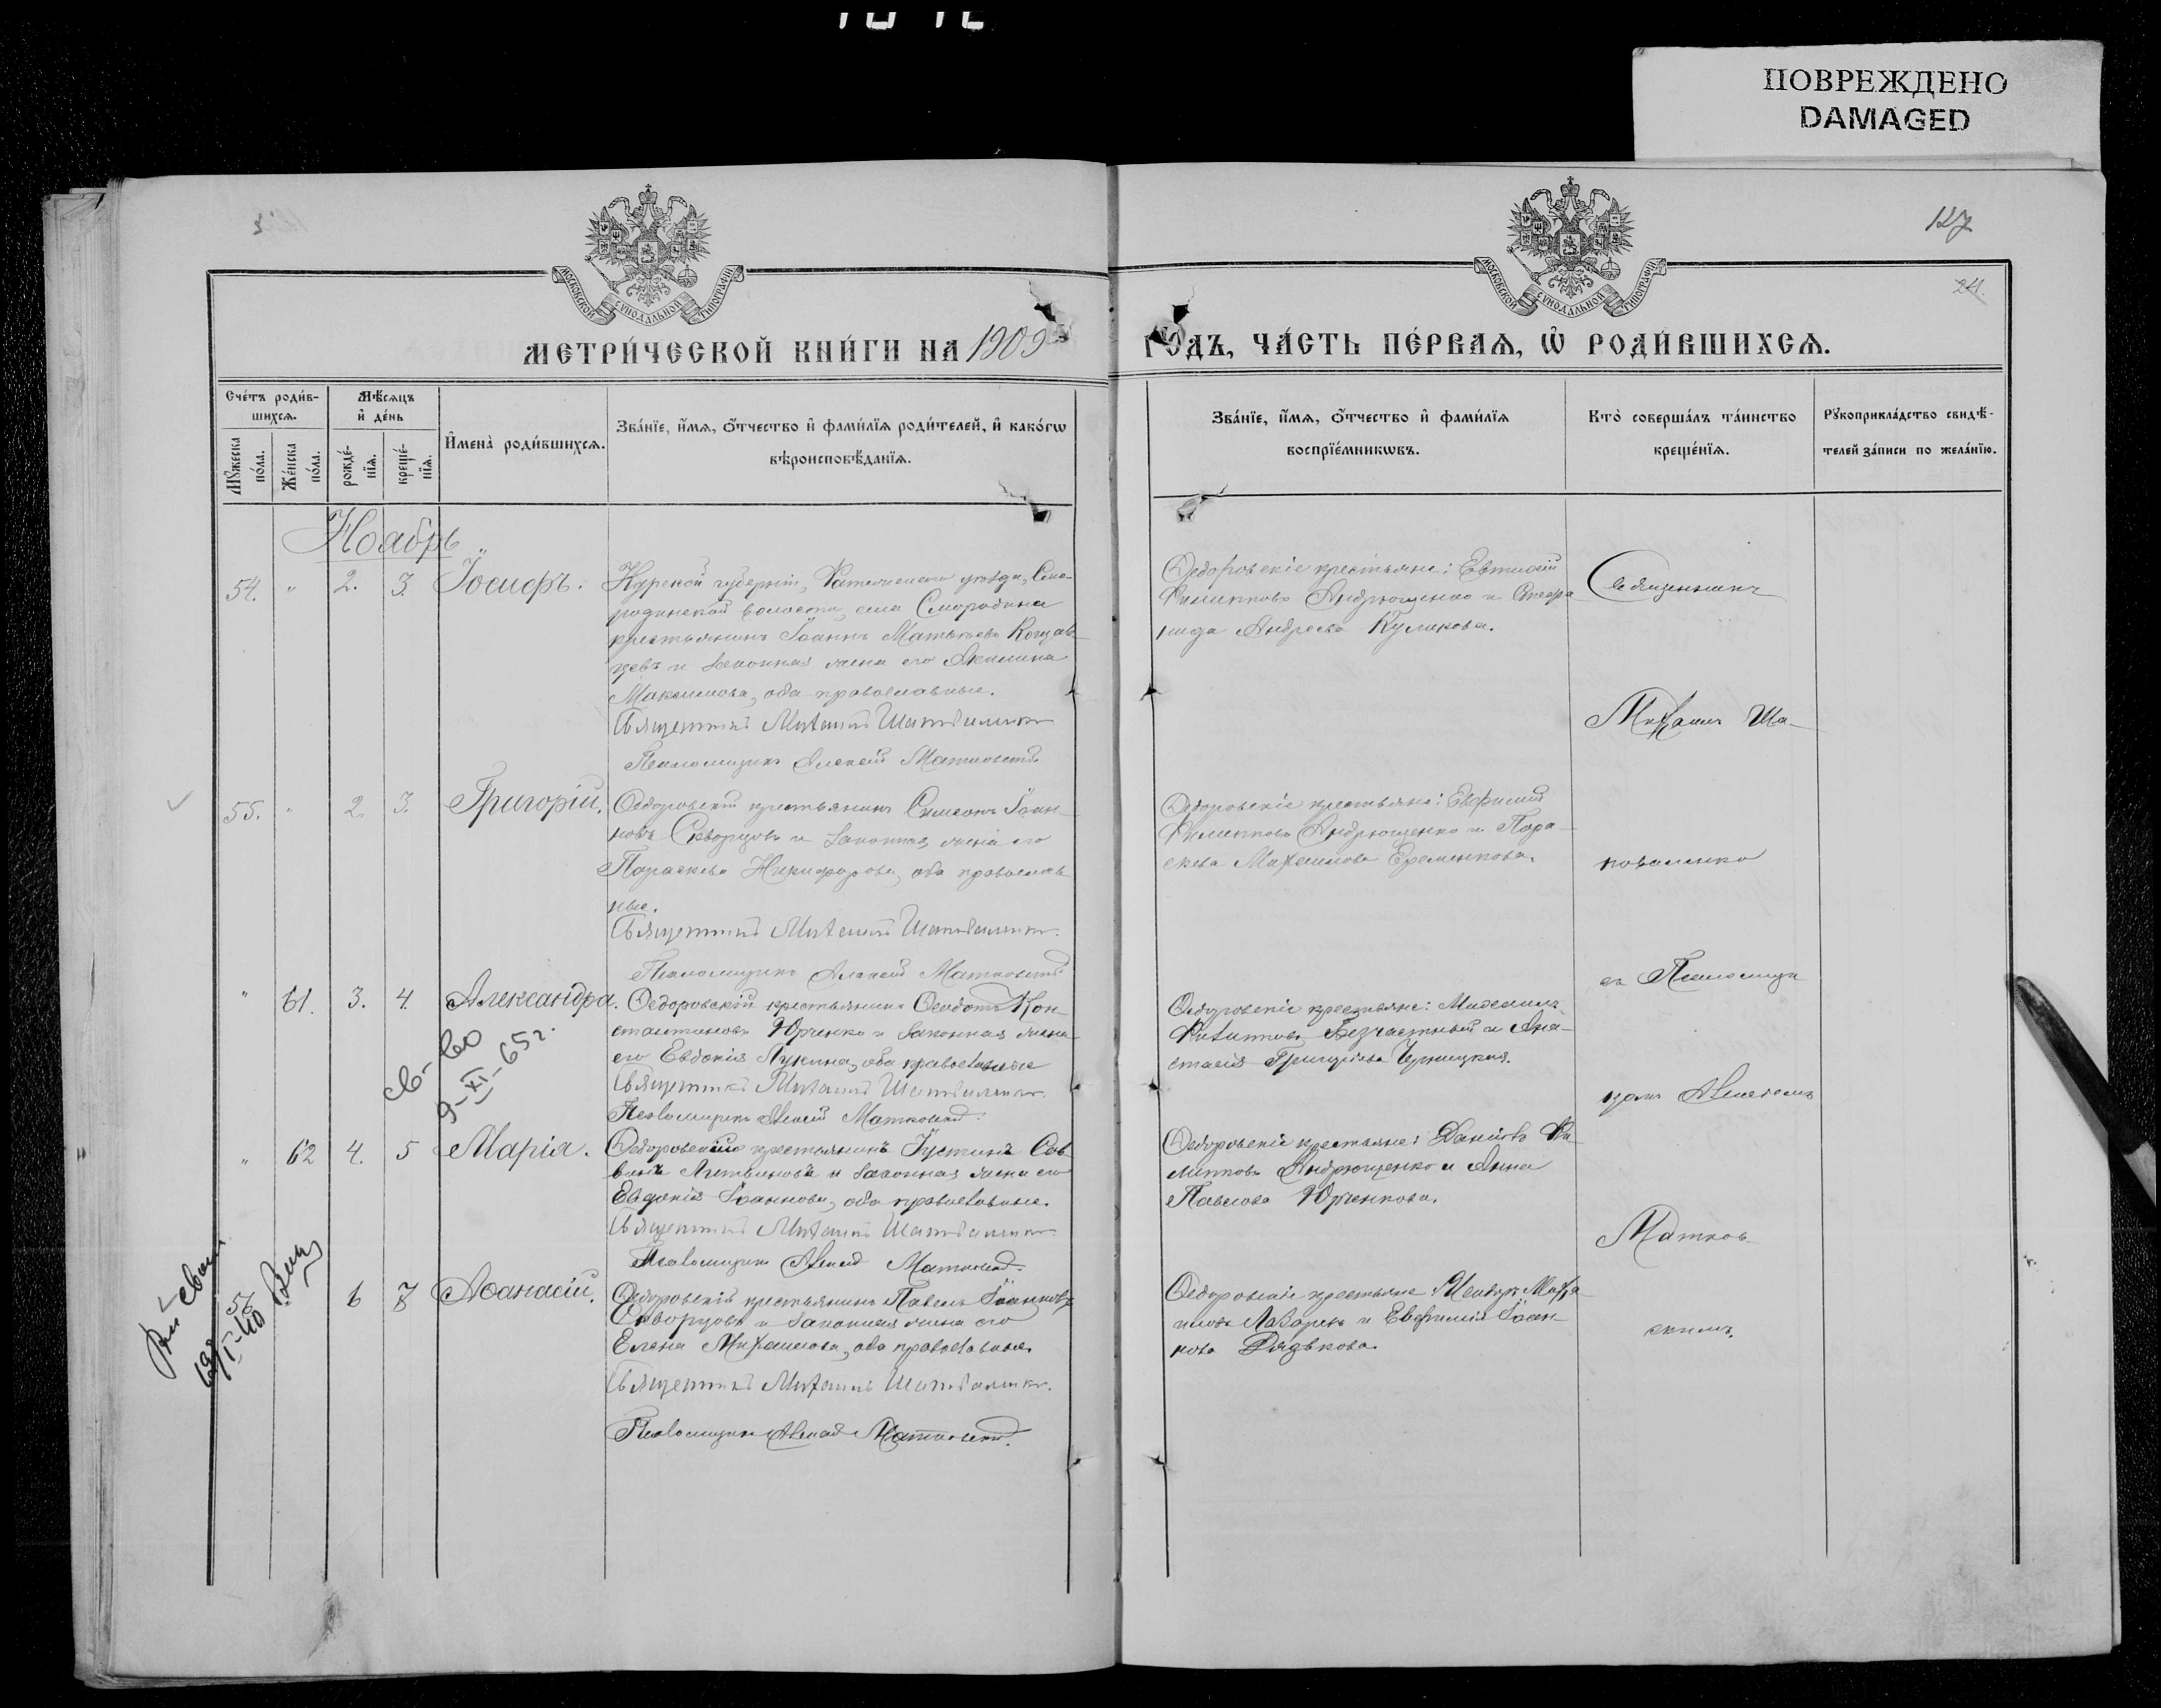 ПОВРЕЖДЕНО
DAMAGED
127
24.
МОСКОВСКОЙ СѴНОДАЛЬНОЙ ТИПОГРАФІИ
МОСКОВСКОЙ СѴНОДАЛЬНОЙ ТИПОГРАФІИ
МЕТРИ́ЧЕСКОЙ КНИ́ГИ НА 1909
ГОДЪ, ЧА́СТЬ ПЕ́РВАѦ, Ѡ҆ РОДИ́ВШИХСѦ.
Сче́тъ роди́в-
шихсѧ.
Мꙋ́жеска по́ла.
Же́нска по́ла.
Мѣ́сѧцъ
и҆ де́нь
рожде́-
нїѧ.
креще́-
нїѧ.
И҆мена̀ роди́вшихсѧ.
Зва́нїе, и҆́мѧ, ѻ҆́тчество и҆ фами́лїѧ роди́телей, и҆ како́гѡ
вѣроисповѣ́данїѧ.
Зва́нїе, и҆́мѧ, ѻ҆́тчество и҆ фами́лїѧ
воспрїе́мникѡвъ.
Кто̀ соверша́лъ та́инство
креще́нїѧ.
Рꙋкоприкла́дство свидѣ́-
телей за́писи по жела́нїю.
Ноябрь
54. " 2. 3. Іосифъ.
Курской губерніи, уѣзда, Смо-
родинской волости, села Смородина
крестьянинъ Іоаннъ Матѳеевъ
и законная жена его Акилина
Максимова, оба православные.
Священникъ Михаилъ Шаповаленко
Псаломщикъ Алексѣй Матковскій
Ѳедоровскіе крестьяне: Евтихій
Филипповъ Андрющенко и
Андреева Куликова.
Священникъ
Михаилъ Ша-
55. " 2. 3. Григорій.
Ѳедоровскій крестьянинъ Симеонъ Іоан-
новъ Скворцовъ и законная жена его
Параскева Никифорова, оба православ-
ные.
Священникъ Михаилъ Шаповаленко.
Псаломщикъ Алексѣй Матковскій
Ѳедоровскіе крестьяне: Евфимій
Филипповъ Андрющенко и Пара-
скева Михаилова Еременкова.
поваленко
съ Псаломщи-
" 61. 3. 4. Александра.
Ѳедоровскій крестьянинъ Ѳеодотъ Кон-
стантиновъ Юрченко и законная жена
его Евдокія Лукина, оба православные
Священникъ Михаилъ Шаповаленко.
Псаломщикъ Алексѣй Матковскій.
Ѳедоровскіе крестьяне: Михаилъ
Филипповъ Безчастный и Ана-
стасія Григоріева Черницкая.
св-во
9-XI-65г.
комъ Алексѣемъ
" 62 4. 5 Марія.
Ѳедоровскій крестьянинъ Іустинъ Сав-
винъ Литвиновъ и законная жена его
Евдокія Іоаннова, оба православные.
Священникъ Михаилъ Шаповаленко
Псаломщикъ Алексѣй Матковскій.
Ѳедоровскіе крестьяне: Даніилъ Фи-
липповъ Андрющенко и Анна
Павлова Юрченкова.
Матков-
56 6 7 Аѳанасій.
Ѳедоровскій крестьянинъ Павелъ Іоанновъ
Скворцовъ и законная жена его
Елена Михаилова, оба православные.
Священникъ Михаилъ Шаповаленко.
Псаломщикъ Алексѣй Матковскій.
Ѳедоровскіе крестьяне: Исидоръ Миха-
иловъ Лазаревъ и Евфимія Іоан-
нова Дядькова.
скимъ.